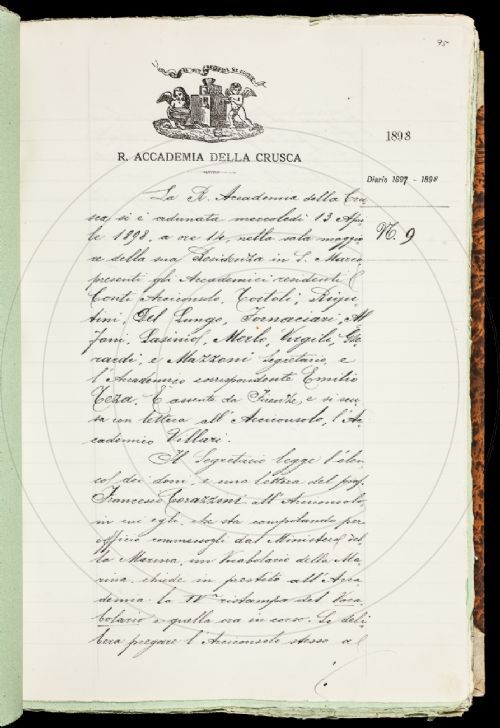 95
R. ACCADEMIA DELLA CRUSCA
1898
Diario 1897 - 1898
N. 9
La R. Accademia della Cru
sca, si è adunata mercoledì 13 Apri
le 1898, a ore 14, nella sala maggio
re della sua Residenza in S. Marco
presenti gli Accademici residenti
Conti Arciconsolo, Tortoli, Rigu
tini, Del Lungo, Fornaciari, Al
fani, Lasinio, Merlo, Virgili, Ghe
rardi, e Mazzoni Segretario, e
l'Accademico corrispondente Emilio
Teza. È assente da Firenze, e si scu
sa con lettera all'Arciconsolo, l'Ac
cademico Villari.
Il Segretario legge l'elen
co dei doni, e una lettera del prof.
Francesco Corazzini all'Arciconsolo,
in cui egli, che sta compilando per
officio commessogli dal Ministero del
la Marina, un Vocabolario della Ma
rina, chiede in prestito all'Acca
demia la IVª ristampa del Voca
bolario e quella ora in corso. Si deli
bera pregare l'Arciconsolo stesso a